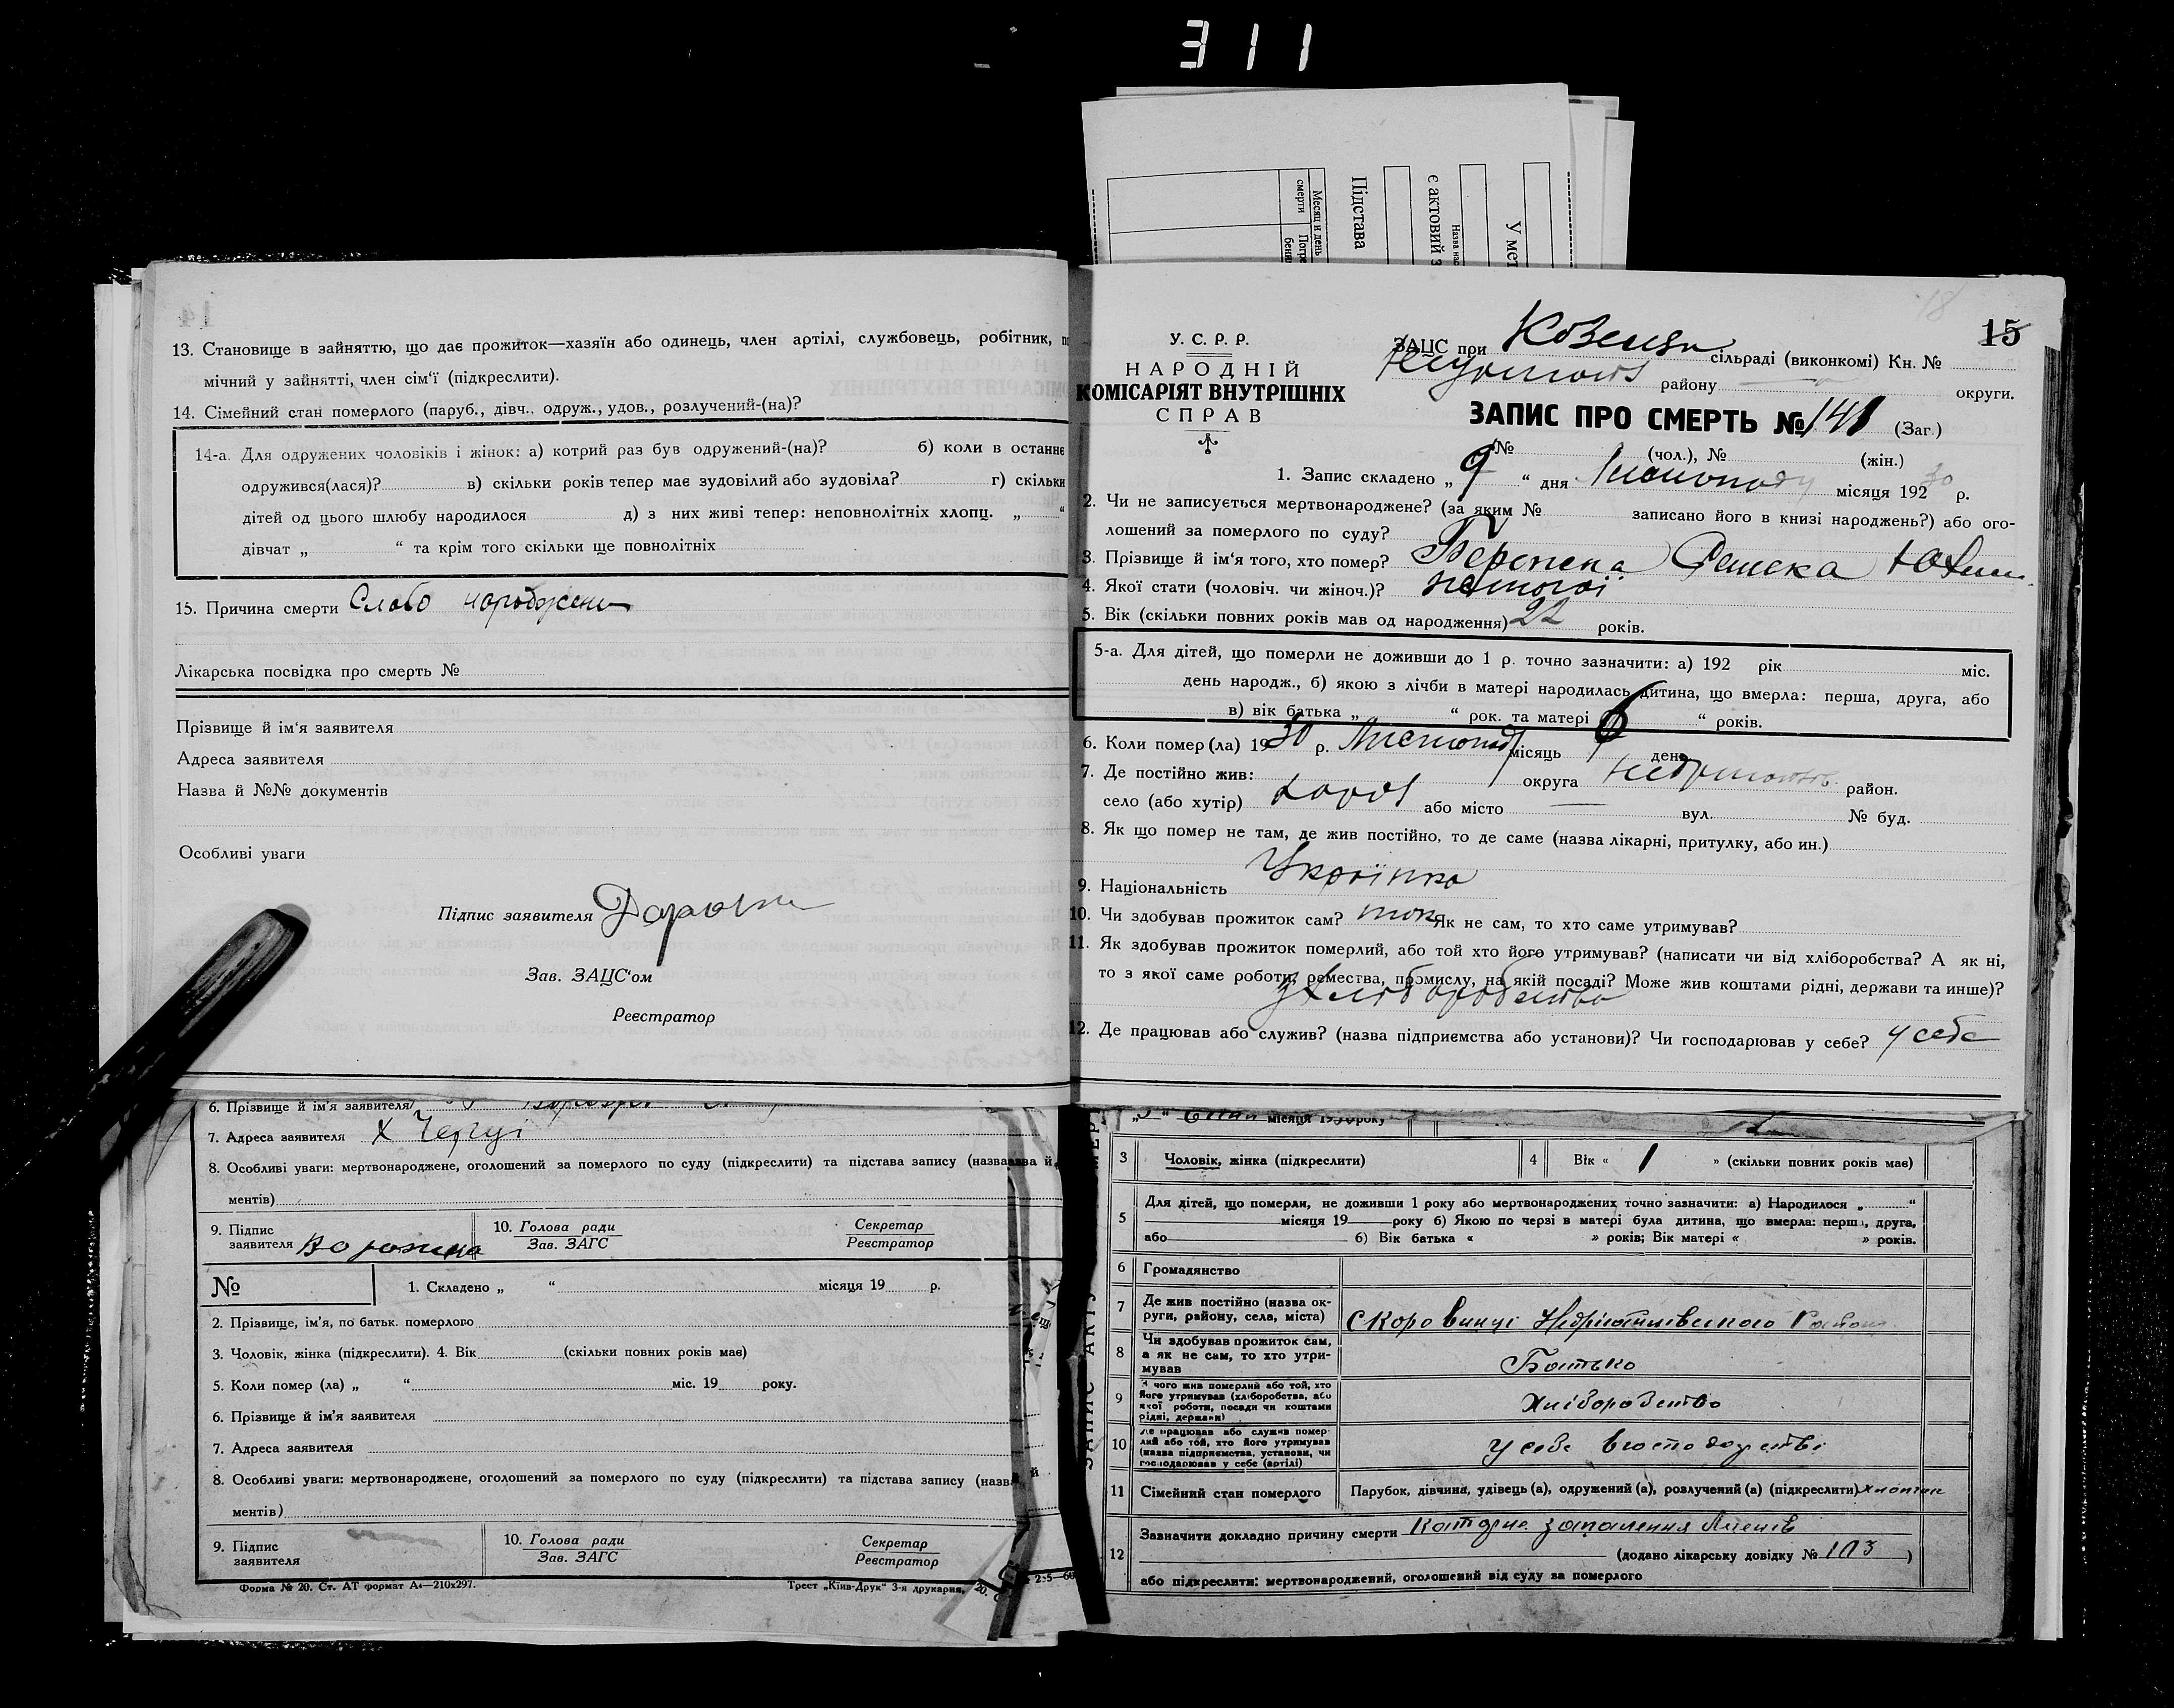 311
Месяц и день
смерти
Погре
бени
Підстава
є актовий з
Назва нас
У мет
14
13. Становище в зайняттю, що дає прожиток—хазяїн або одинець, член артілі, службовець, робітник, по
мічний у зайнятті, член сім'ї (підкреслити).
14. Сімейний стан померлого (паруб., дівч., одруж., удов., розлучений-(на)?
14-а. Для одружених чоловіків і жінок: а) котрий раз був одружений-(на)? б) коли в останнє
одружився(лася)? в) скільки років тепер має зудовілий або зудовіла? г) скільки
дітей од цього шлюбу народилося д) з них живі тепер: неповнолітніх хлопц. „ “
дівчат „ “ та крім того скільки ще повнолітніх
15. Причина смерти Слабо
Лікарська посвідка про смерть №
Прізвище й ім'я заявителя
Адреса заявителя
Назва й №№ документів
Особливі уваги
Підпис заявителя
Зав. ЗАЦС'ом
Реєстратор
6. Прізвище й ім'я заявителя
7. Адреса заявителя х
8. Особливі уваги: мертвонароджене, оголошений за померлого по суду (підкреслити) та підстава запису (назва й
ментів)
9. Підпис
заявителя
10. Голова ради
Зав. ЗАГС
Секретар
Реєстратор
№
1. Складено „ “ місяця 19 р.
2. Прізвище, ім'я, по батьк. померлого
3. Чоловік, жінка (підкреслити). 4. Вік (скільки повних років мав)
5. Коли помер (ла) „ “ міс. 19 року.
6. Прізвище й ім'я заявителя
7. Адреса заявителя
8. Особливі уваги: мертвонароджене, оголошений за померлого по суду (підкреслити) та підстава запису (назва й
ментів)
9. Підпис
заявителя
10. Голова ради
Зав. ЗАГС
Секретар
Реєстратор
Форма № 20. Ст. АТ формат А4—210х297. Трест „Київ-Друк" 3-я друкарня,
18
15
У. С. Р. Р.
НАРОДНІЙ
КОМІСАРІЯТ ВНУТРІШНІХ
СПРАВ
ЗАЦС при сільраді (виконкомі) Кн. №
району округи.
ЗАПИС ПРО СМЕРТЬ № 141 (Заг.)
№ (чол.), № (жін.)
1. Запис складено „ 9 “ дня Листопаду місяця 1930 р.
2. Чи не записується мертвонароджене? (за яким № записано його в книзі народжень?) або ого-
лошений за померлого по суду?
3. Прізвище й ім'я того, хто помер?
4. Якої стати (чоловіч. чи жіноч.)?
5. Вік (скільки повних років мав од народження) 22 років.
5-а. Для дітей, що померли не доживши до 1 р. точно зазначити: а) 192 рік міс.
день народж., б) якою з лічби в матері народилась дитина, що вмерла: перша, друга, або
в) вік батька „ “ рок. та матері „ “ років.
6. Коли помер (ла) 1930 р. Листопад місяць 6 день
7. Де постійно жив: округа район.
село (або хутір) або місто — вул. № буд.
8. Як що помер не там, де жив постійно, то де саме (назва лікарні, притулку, або ин.)
9. Національність Українка
10. Чи здобував прожиток сам? так Як не сам, то хто саме утримував?
11. Як здобував прожиток померлий, або той хто його утримував? (написати чи від хліборобства? А як ні,
то з якої саме роботи, ремества, промислу, на якій посаді? Може жив коштами рідні, держави та инше)?
з хліборобства
12. Де працював або служив? (назва підприємства або установи)? Чи господарював у себе? у себе
місяця 1930 року
3 Чоловік, жінка (підкреслити) 4 Вік « 1 » (скільки повних років мав)
5 Для дітей, що померли, не доживши 1 року або мертвонароджених точно зазначити: а) Народилося „ “
місяця 19 року б) Якою по черзі в матері була дитина, що вмерла: перша, друга,
або б) Вік батька « » років; Вік матері « » років.
6 Громадянство
7 Де жив постійно (назва ок-
руги, району, села, міста)
8 Чи здобував прожиток сам,
а як не сам, то хто утри-
мував
Батько
9 З чого жив померлий або той, хто
його утримував (хліборобства, або
якої роботи, посади чи коштами
рідні, держави)
Хліборобство
10 Де працював або служив помер-
лий або той, хто його утримував
(назва підприємства, установи, чи
господарював у себе (артілі)
у себе в господарстві
11 Сімейний стан померлого Парубок, дівчина, удівець (а), одружений (а), розлучений (а) (підкреслити)
12 Зазначити докладно причину смерти запалення
(додано лікарську довідку № 103 )
або підкреслити: мертвонароджений, оголошений від суду за померлого